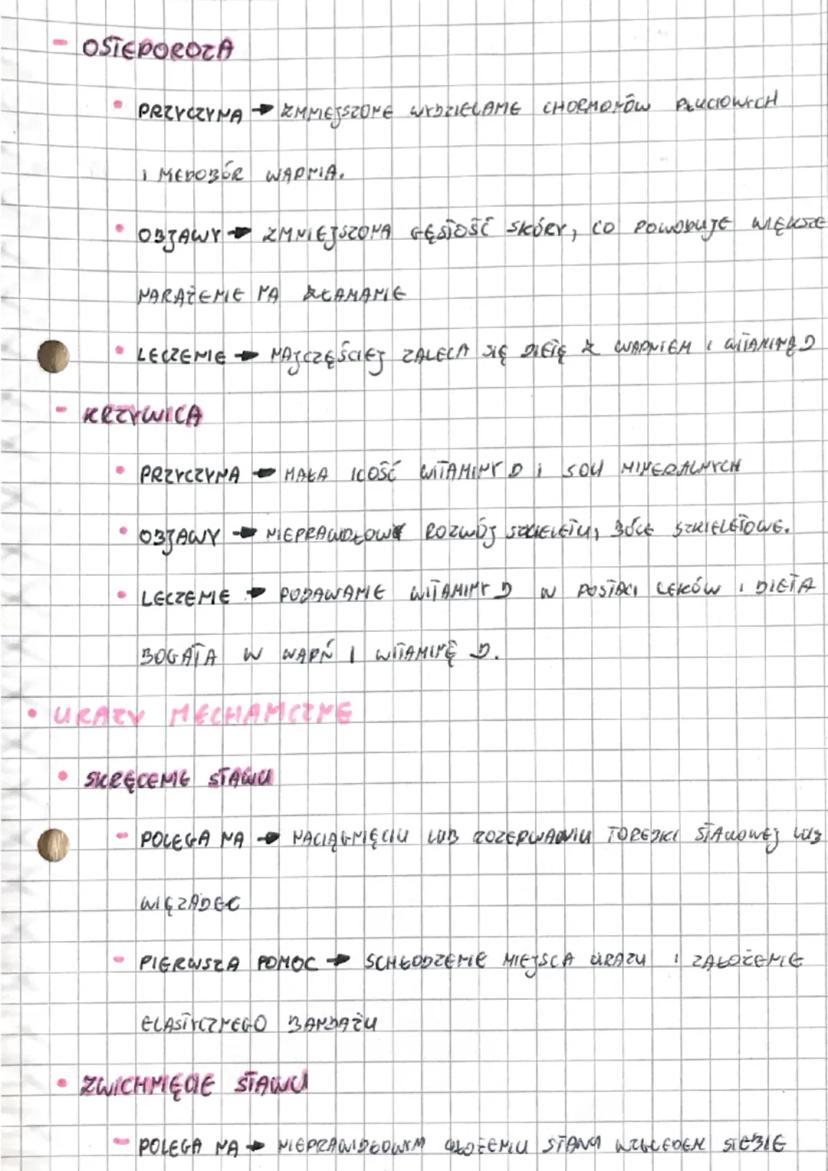 - OSTEPOROZA
• PRZYCZYNA → ZMNIEJSZONE WYDZIELANIE CHORMONÓW PŁCIOWYCH
I NIEDOBÓR WAPNIA.
• OBJAWY → ZMNIEJSZONA GĘSTOŚĆ SKÓRY, CO POWODUJE WIĘKSZE
NARAŻENIE NA ZŁAMANIE
• LECZENIE → NAJCZĘŚCIEJ ZALECA SIĘ DIETĘ Z WAPNIEM I WITAMINĄ D
- KRZYWICA
• PRZYCZYNA → MAŁA ILOŚĆ WITAMINY D I SOLI MINERALNYCH
• OBJAWY → NIEPRAWDŁOWY ROZWÓJ SZKIELETU, BÓLE SZKIELETOWE.
• LECZENIE → PODAWANIE WITAMINY D W POSTACI LEKÓW I DIETA
BOGATA W WAPŃ I WITAMINĘ D.
• URAZY MECHANICZNE
• SKRĘCENIE STAWU
- POLEGA NA → NACIĄGNIĘCIU LUB ROZERWANIU TOREBKI STAWOWEJ LUB
WIĘZADEŁ
- PIERWSZA POMOC → SCHŁODZENIE MIEJSCA URAZU I ZAŁOŻENIE
ELASTYCZNEGO BANDAŻU
• ZWICHNIĘCIE STAWU
- POLEGA NA → NIEPRAWIDŁOWYM UŁOŻENIU STAWU WZGLĘDEM SIEBIE